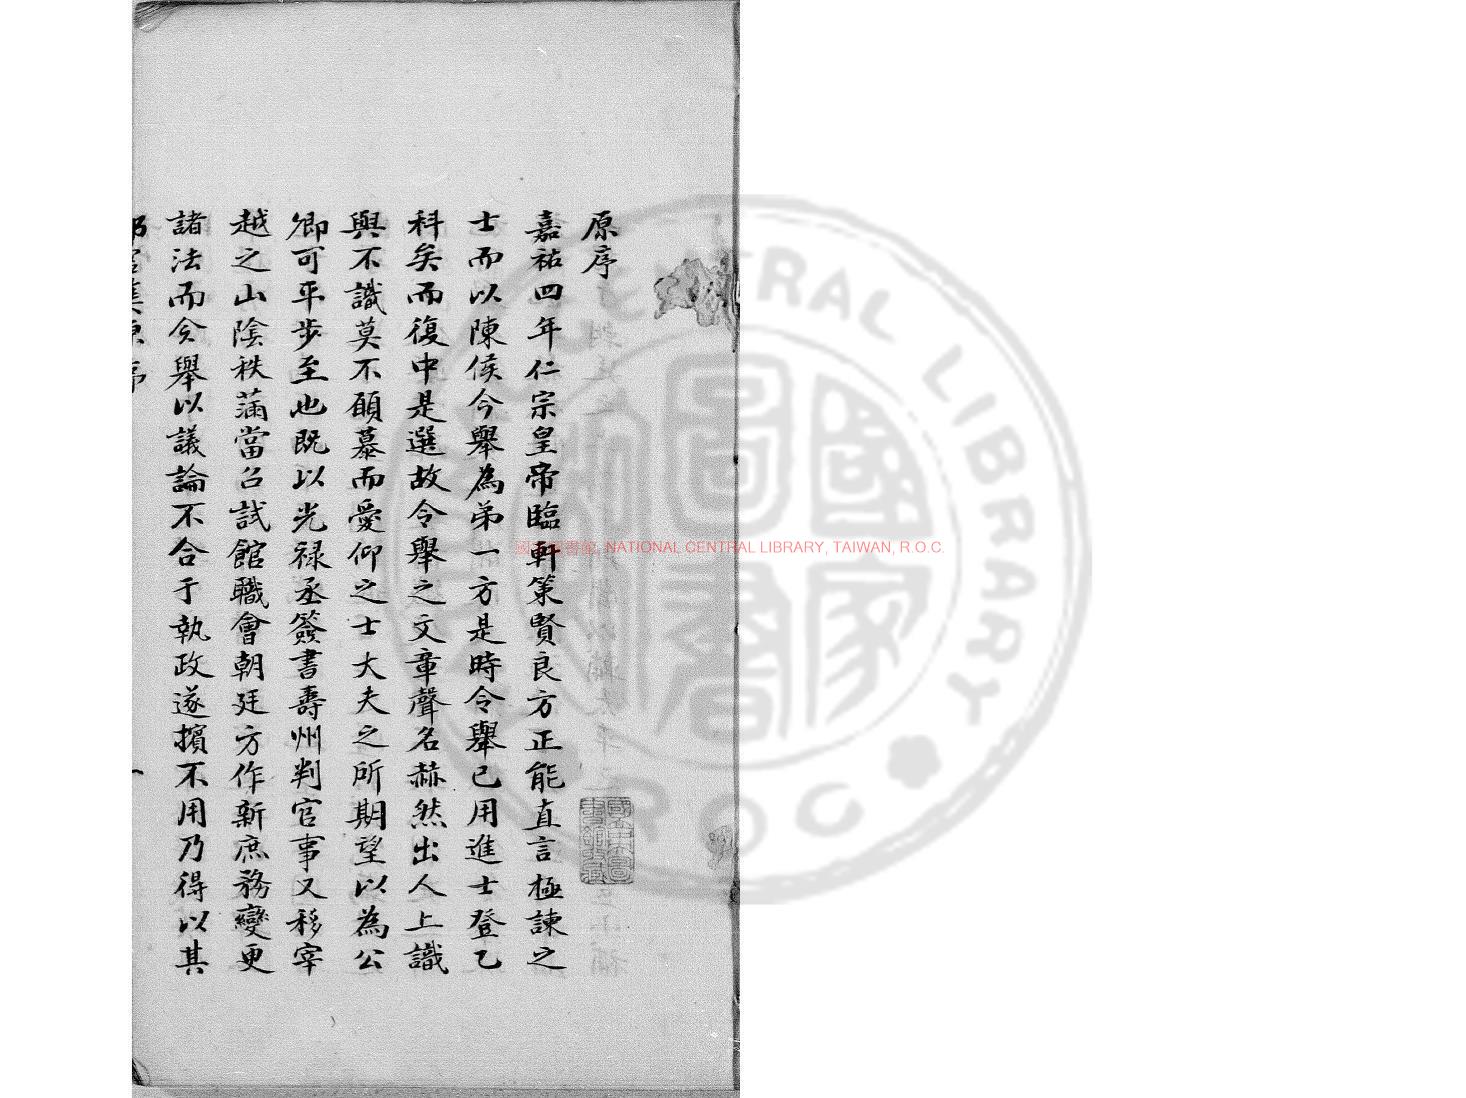 原序
嘉祐四年仁宗皇帝臨軒策賢良方正能直言極諫之
士而以陳侯令舉為弟一方是時令舉已用進士登乙
科矣而復中是選故令舉之文章聲名赫然出人上識
與不識莫不願慕而愛仰之士大夫之所期望以為公
卿可平步至也既以光祿丞簽書壽州判官事又移宰
越之山陰秩滿當召試館職會朝廷方作新庶務變更
諸法而令舉以議論不合于執政遂擯不用乃得以其
都官集原序
一
國家圖書館, NATIONAL CENTRAL LIBRARY, TAIWAN, R.O.C.